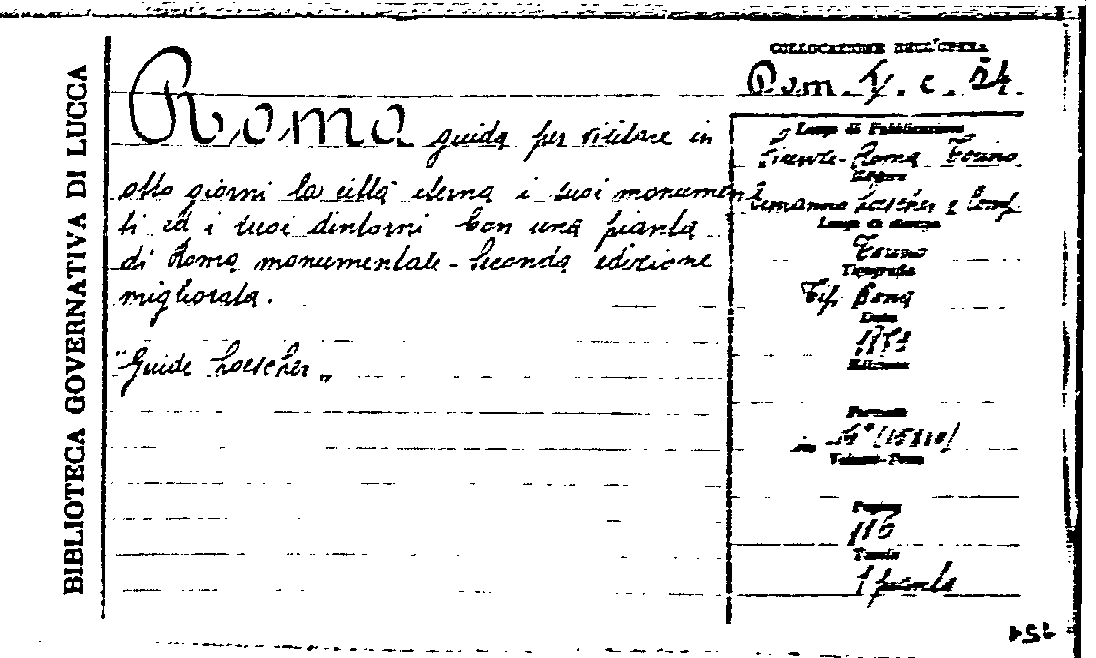 BIBLIOTECA GOVERNATIVA DI LUCCA
COLLOCAZIONE DELL'OPERA
Rom. V. c. 54.
Roma guida per visitare in
otto giorni la città eterna i suoi monumen
ti ed i suoi dintorni con una pianta
di Roma monumentale - Seconda edizione
migliorata.
"Guide Loescher„
Luogo di Pubblicazione
Firenze - Roma Torino
Editore
Ermanno Loescher e Comp.
Luogo di stampa
Torino
Tipografia
Tip. Bona
Data
Edizione
Formato
in 16° (15x10)
Volumi-Tomo
Pagine
116
Tavole
1 pianta